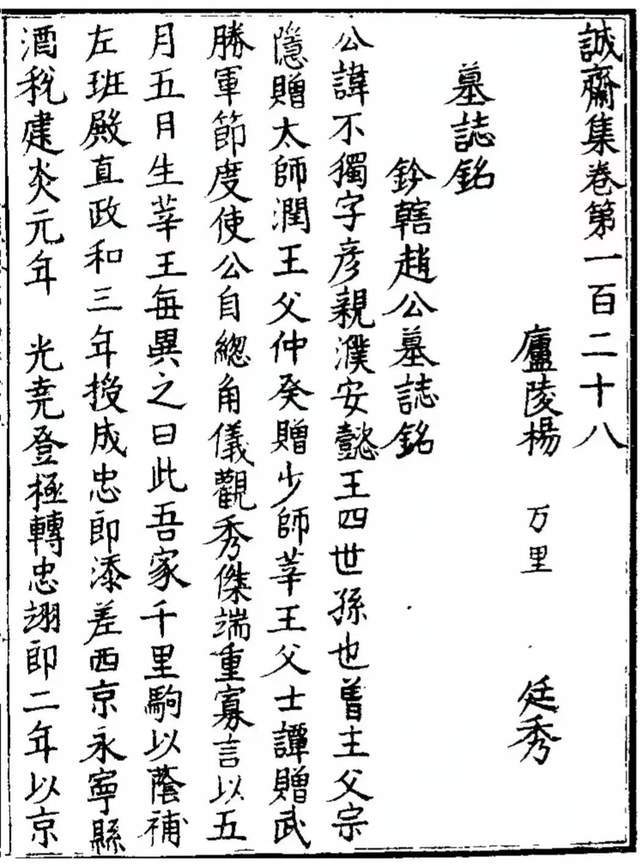 誠齋集卷第一百二十八
廬陵楊 万里 廷秀
墓誌銘
鈐轄趙公墓誌銘
公諱不獨字彦親濮安懿王四世孫也曽王父宗
隱贈太師潤王父仲癸贈少師莘王父士譚贈武
勝軍節度使公自緫角儀觀秀傑端重寡言以五
月五日生莘王每異之曰此吾家千里駒以蔭補
左班殿直政和三年授成忠郎添差西京永寧縣
酒稅建炎元年 光堯登極轉忠翊郎二年以京